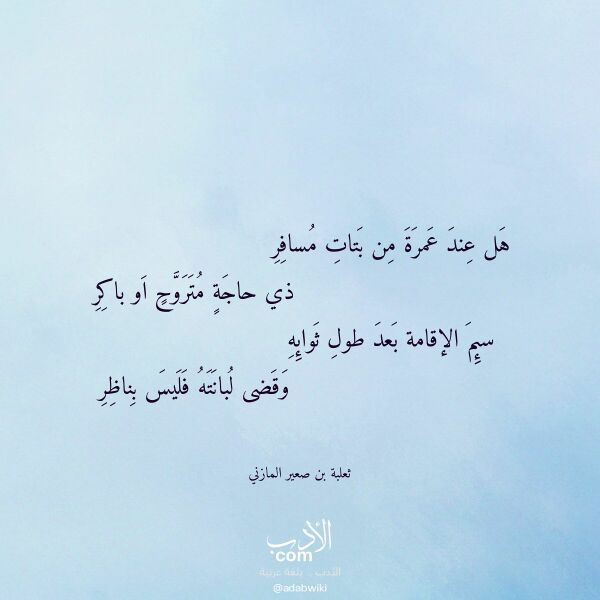 هَل عِندَ عَمرَةَ مِن بَتاتِ مُسافِرِ
ذي حاجَةٍ مُتَرَوَّحٍ اَو باكِرِ
سيِمَ الإقامة بَعدَ طولِ ثَوائِهِ
وَقَضى لُبانَتَهُ فَلَيسَ بِناظِرِ
ثعلبة بن صعير المازني
الأدب
com
الأدب .. بلغة عربية
@adabwiki